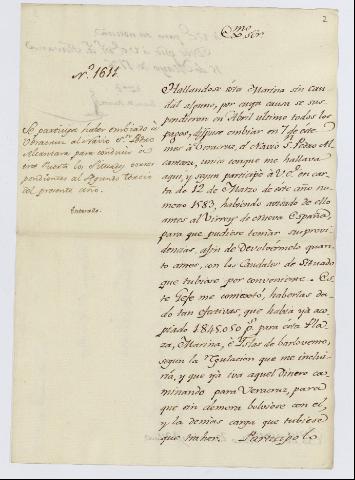 2
Exmo Sor
Nº 1611.
Se participa haver embiado a
Veracruz al Navio Sn Pedro
Alcantara, para conducir a
este Puerto los Situados corres-
pondientes al segundo tercio
del presente año.
Enterado.
Hallandose esta Marina sin cau-
dal alguno, por cuya causa se sus-
pendieron en Abril ultimo todos los
pagos, dispuse embiar en 7 de este
mes à Veracruz, el Navio Sn Pedro Al-
cantara, unico que me hallava
aqui, y segun participé à V.E. en car-
ta de 12 de Marzo de este año nu-
mero 1583, habiendo avisado de ello
antes al Virrey de nueva España
para que pudiese tomar sus provi-
dencias, afin de Devolvermelo quan-
to antes, con los Caudales de Situado
que tubiese por conveniente. Es-
te Gefe me contextó, haberlas da-
do tan efectivas, que habia ya aco-
piado 1845050 ps para esta Pla-
za, Marina, é Islas de barlovento,
segun la regulacion que me inclui-
ria, y que yà iva aquel dinero ca-
minando para Veracruz, para
que sin demora bolviese con el,
y la demas carga que tubiese
que traher. Participolo